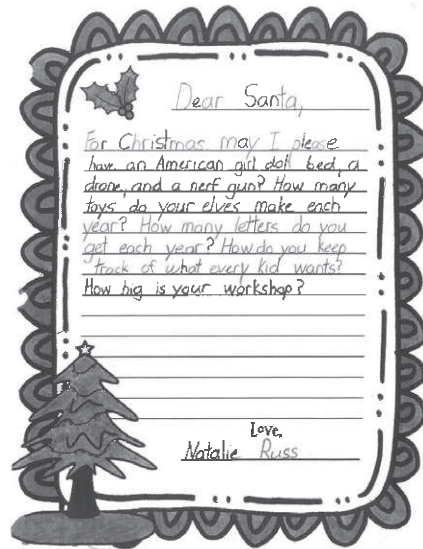 Dear Santa,
For Christmas may I please
have an American girl doll bed, a
drone, and a nerf gun? How many
toys do your elves make each
year? How many letters do you
get each year? How do you keep
track of what every kid wants?
How big is your workshop?
Love,
Natalie Russ